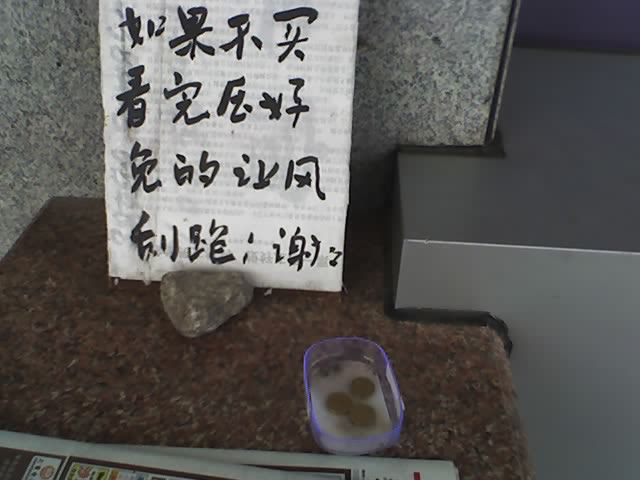 如果不买
看完压好
免的让风
刮跑！谢々